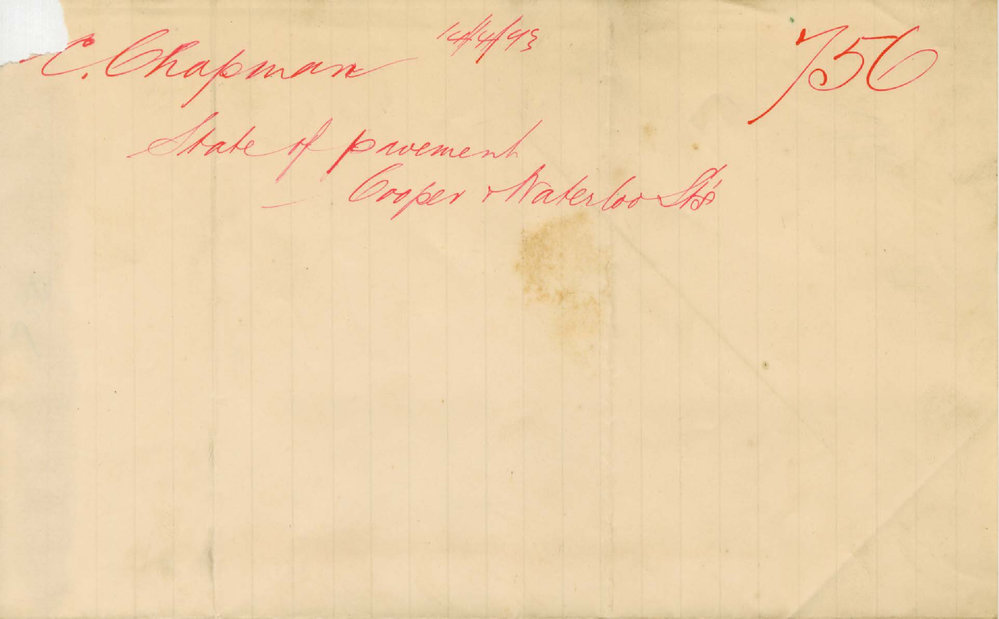 C. Chapman 14/4/93 756
State of pavement
Cooper & Waterloo Sts